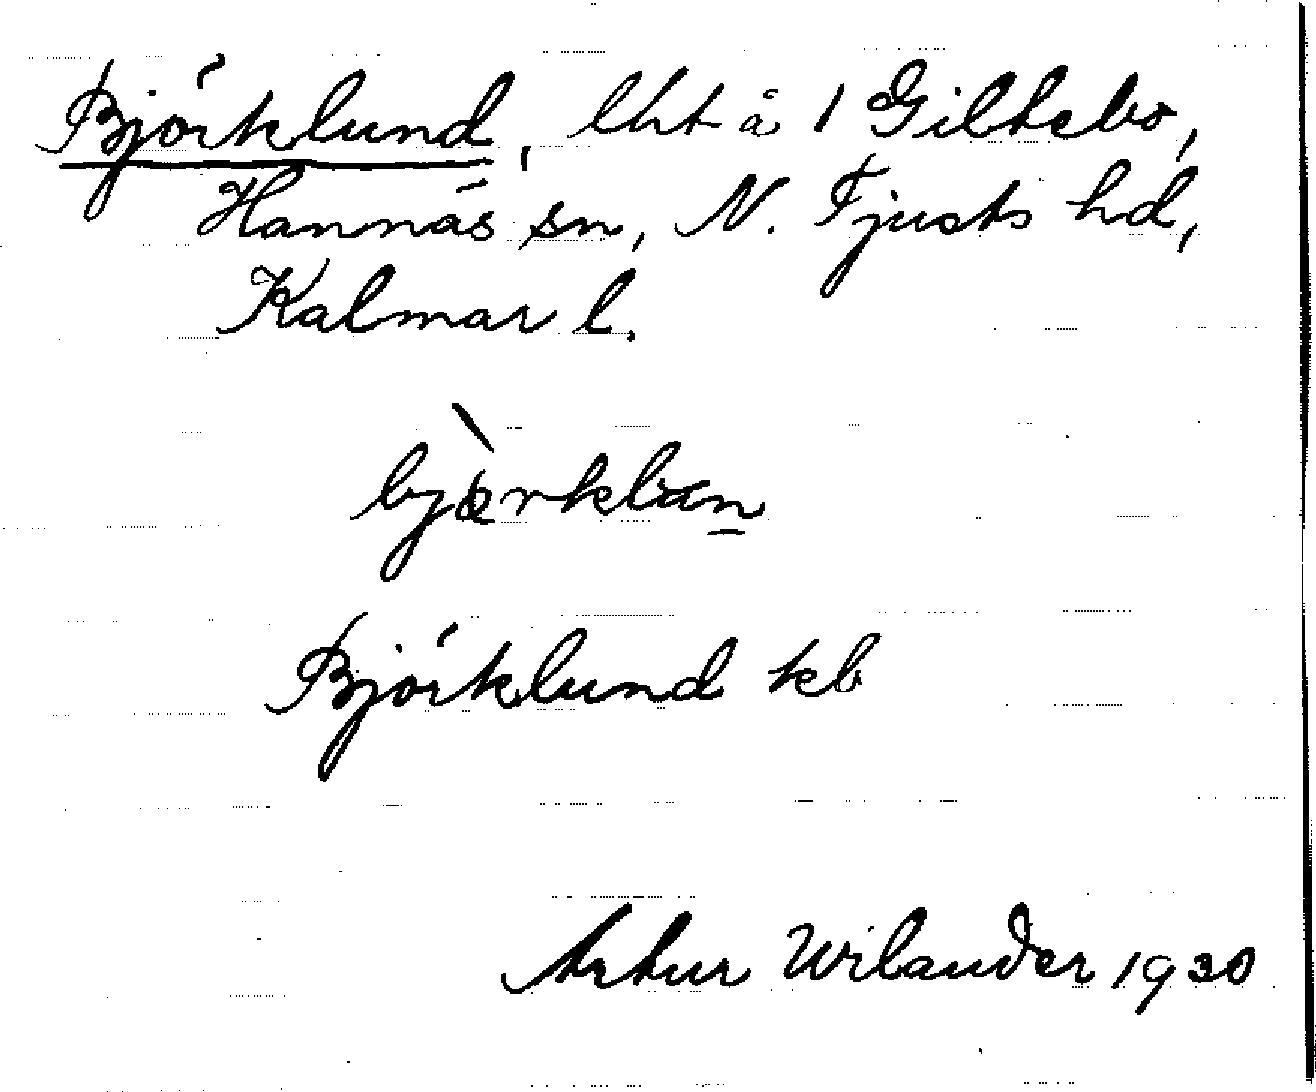 Björklund, lht å 1 Giltebo,
Hannäs sn, N. Tjusts hd,
Kalmar l.
Björklund kb
Artur Wilander 1930